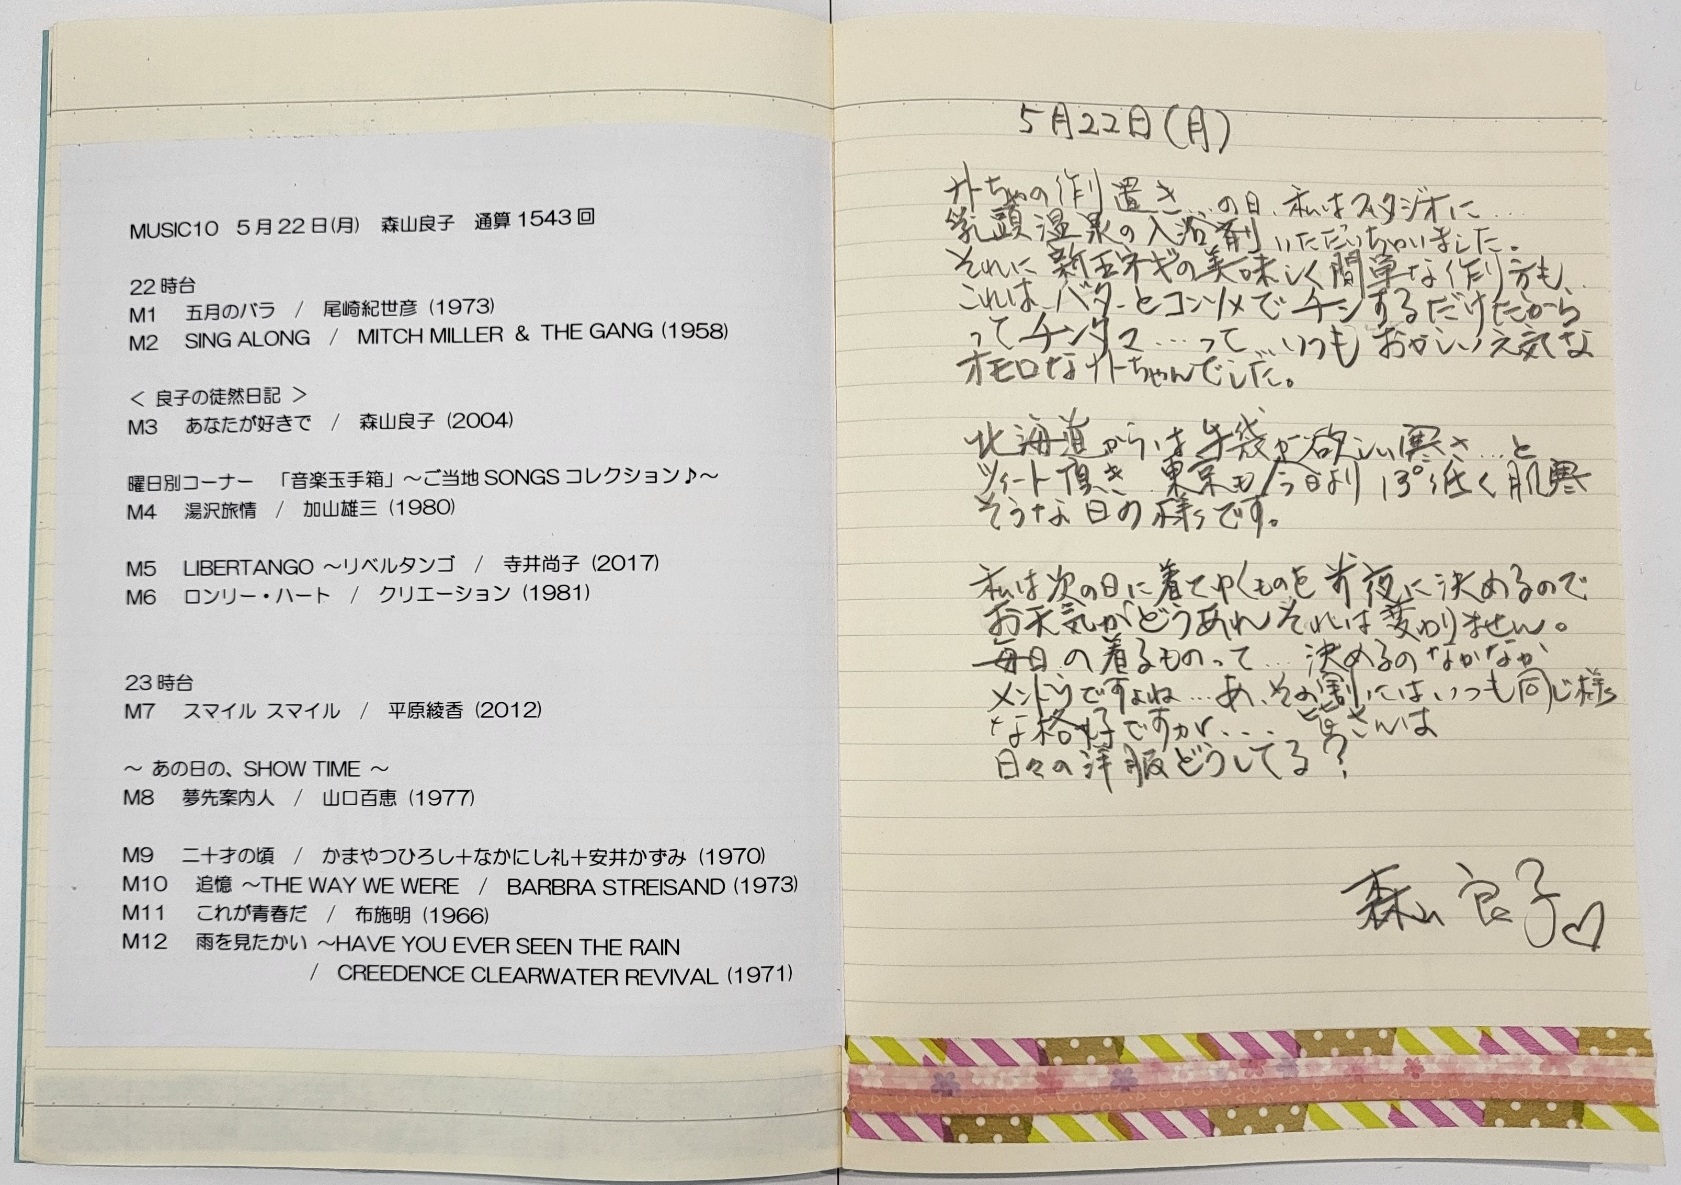 MUSIC10 5月22日(月) 森山良子 通算1543回
22時台
M1 五月のバラ / 尾崎紀世彦 (1973)
M2 SING ALONG / MITCH MILLER & THE GANG (1958)
< 良子の徒然日記 >
M3 あなたが好きで / 森山良子 (2004)
曜日別コーナー 「音楽玉手箱」～ご当地SONGSコレクション♪～
M4 湯沢旅情 / 加山雄三 (1980)
M5 LIBERTANGO ～リベルタンゴ / 寺井尚子 (2017)
M6 ロンリー・ハート / クリエーション (1981)
23時台
M7 スマイル スマイル / 平原綾香 (2012)
～ あの日の、SHOW TIME ～
M8 夢先案内人 / 山口百恵 (1977)
M9 二十才の頃 / かまやつひろし+なかにし礼+安井かずみ (1970)
M10 追憶 ～THE WAY WE WERE / BARBRA STREISAND (1973)
M11 これが青春だ / 布施明 (1966)
M12 雨を見たかい ～HAVE YOU EVER SEEN THE RAIN
/ CREEDENCE CLEARWATER REVIVAL (1971)
5月22日(月)
の作り置き...の日、私はスタジオに...
乳頭温泉の入浴剤いただいちゃいました。
それに新玉ネギの美味しく簡単な作り方も、
これは、バターとコンソメでチンするだけだから
ってチンタマ...って、いつもおかしい元気な
オモロなトちゃんでした。
北海道からは手袋が欲しい寒さ...と
ツイート頂き、東京も今日より13°低く肌寒
そうな日の様です。
私は次の日に着てゆくものを前夜に決めるので
お天気がどうあれそれは変わりません。
毎日の着るものって...決めるのなかなか
メンドウですよね...あ、その割にはいつも同じ様
な格好ですが... 皆さんは
日々の洋服どうしてる?
森山良子♡